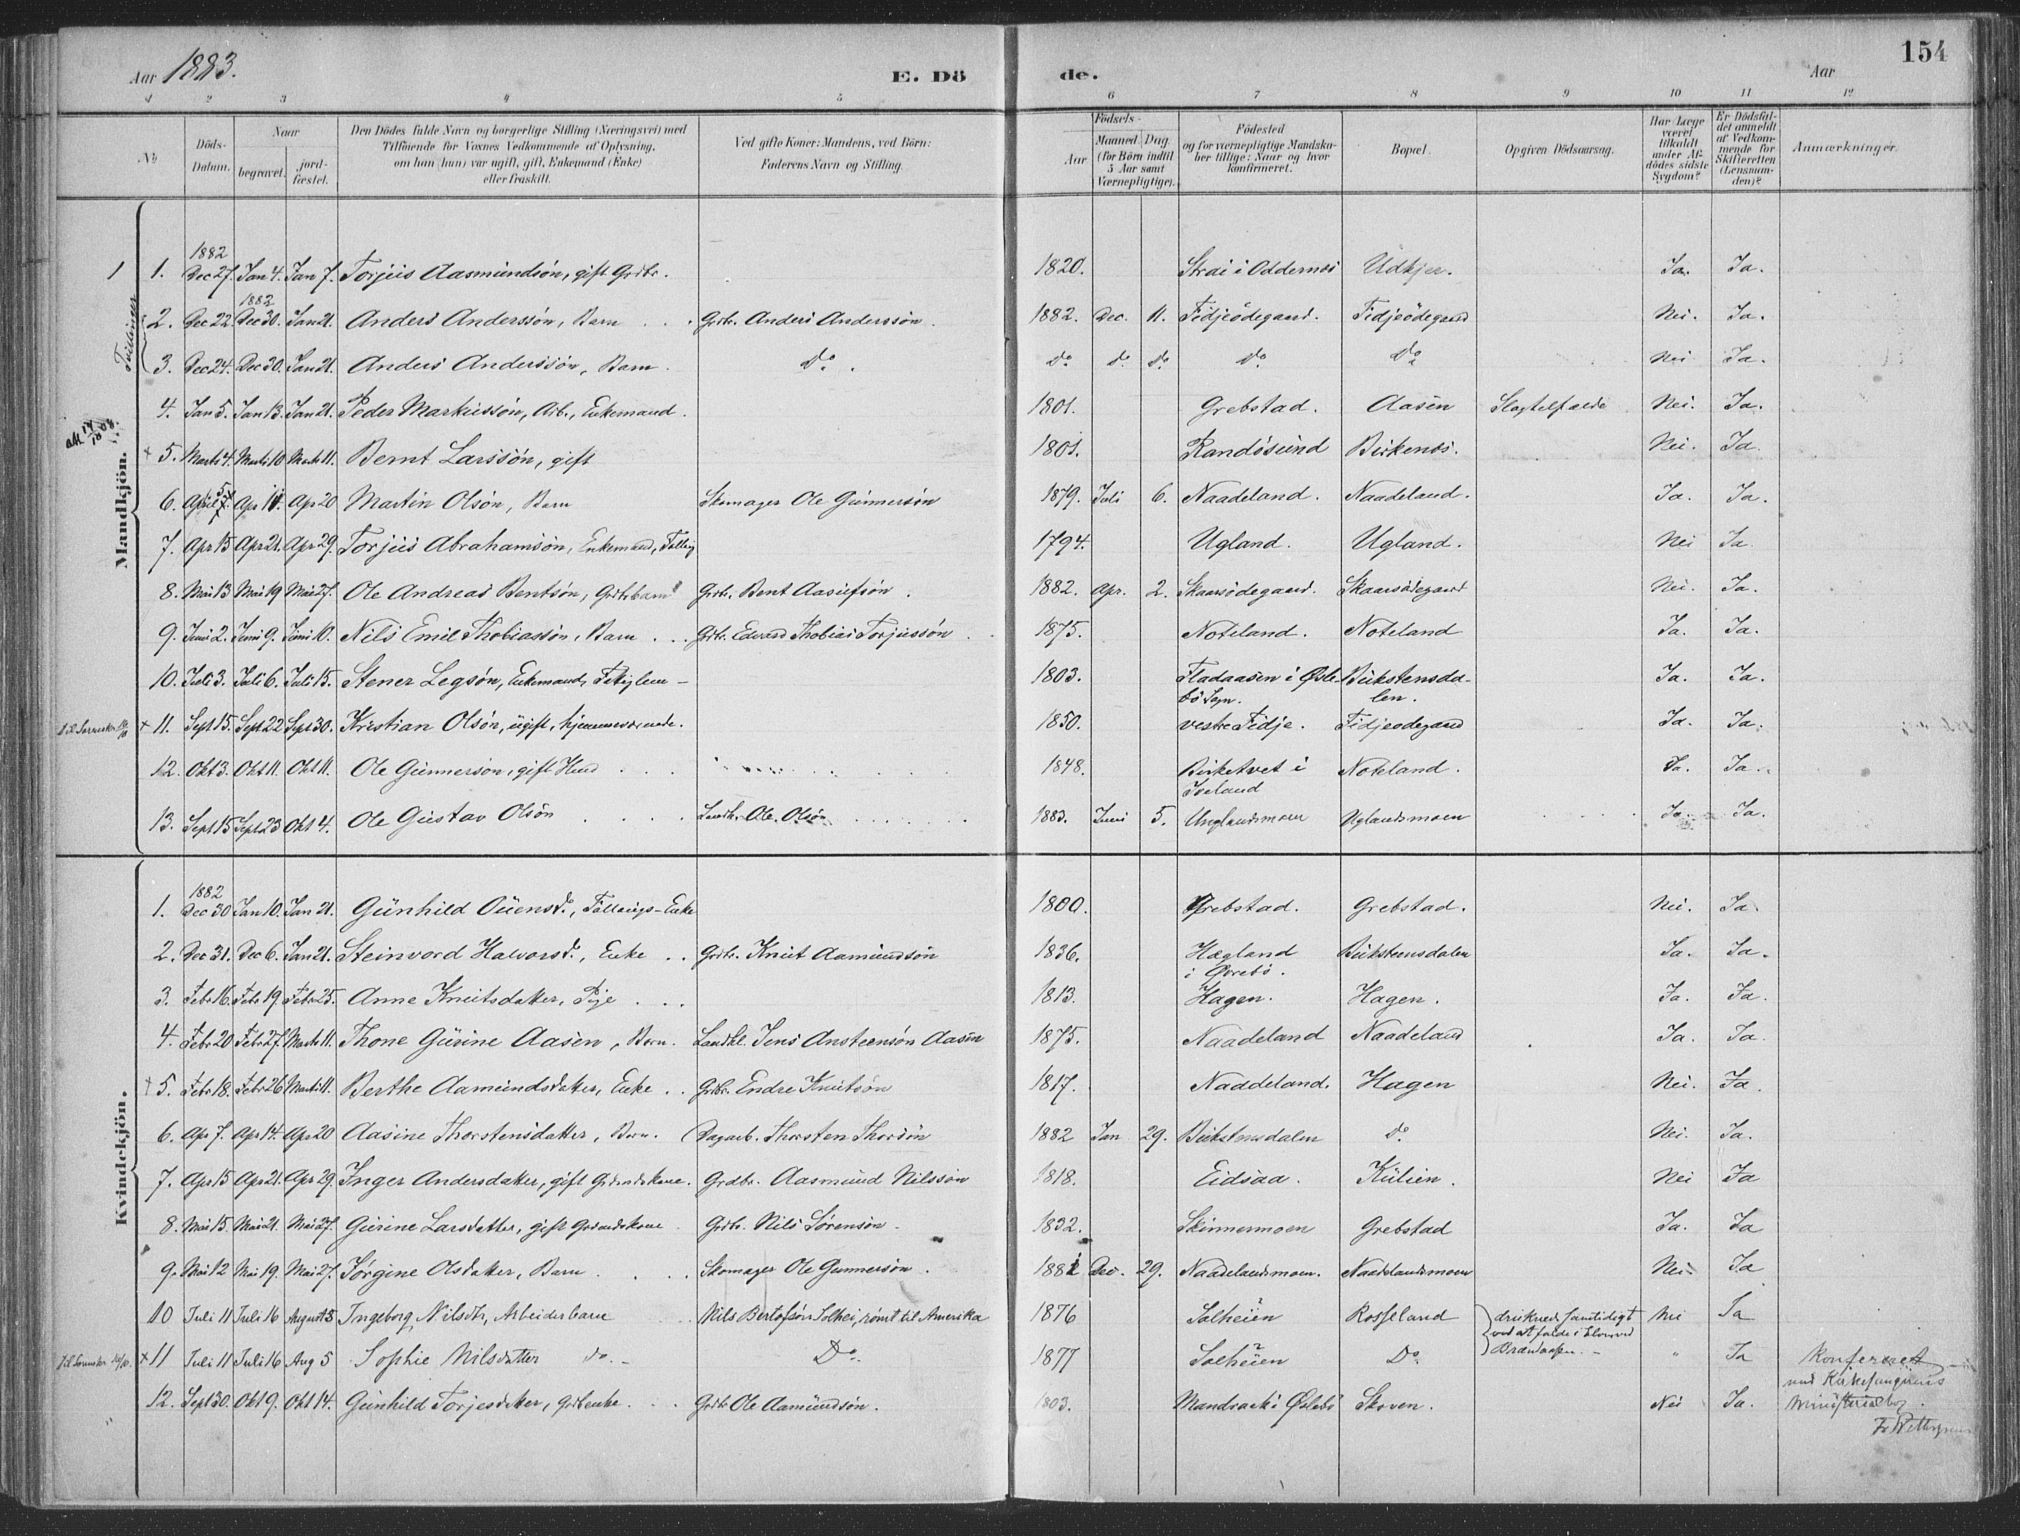 Aar 1883. E. Dö de. Aar 154
1 2 3 4 5 6 7 8 9 10 11 12
No Döds-Datum. Naar begravet. jord-fæstet. Den Dödes fulde Navn og borgerlige Stilling (Næringsvei) med Tilföiende for Voxnes Vedkommende af Oplysning, om han (hun) var ugift, gift, Enkemand (Enke) eller fraskilt. Ved gifte Koner: Mandens, ved Börn: Faderens Navn og Stilling. Födsels- Aar Maaned Dag. (for Börn indtil 5 Aar samt Værnepligtige). Födested og for værnepligtige Mandskaber tillige: Naar og hvor konfirmeret. Bopæl. Opgiven Dödsaarsag. Har Læge været tilkaldt under Afdödes sidste Sygdom? Er Dödsfaldet anmeldt af Vedkommende for Skifteretten (Lensmanden)? Anmærkninger.
Mandkjön.
1882
1 1. Dec 27. Jan 4. Jan 7. Torjuis Aasmundsön, gift Grdbr. 1820. Strai i Oddernes Udkjer. Ja. Ja.
Tvillinger
1882
2. Dec 22. Dec 30. Jan 21. Anders Anderssön, Barn Grdb. Anders Anderssön. 1882. Dec. 11. Fidjeödegaard. Fidjeödegaard Nei. Ja.
3. Dec 24. Dec 30. Jan 21. Anders Anderssön, Barn. do. do do do do. do Nei Ja.
4. Jan 5. Jan 13. Jan 21. Peder Markussön, Arb., Enkemand. 1801. Grebstad. Aasen Slagtilfælde Nei. Ja.
+ 5. Marts 4. Marts 10 Marts 11. Bernt Larssön, gift 1801. Randösund Birkenes. Nei. Ja.
6. April 7. Apr 11. Apr 20 Martin Olsön, Barn Skomager Ole Gunnersön 1879. Juli 6. Naadeland. Naadeland. Ja. Ja.
7. Apr 15 Apr 21. Apr 29. Torjuis Abrahamsön, Enkemand, 1794. Ugland. Ugland. Nei Ja.
8. Mai 13 Mai 19 Mai 27. Ole Andreas Bentsön, Grdbr. Bent Aasulfsön. 1882. Apr. 2. Skaarsödegaard. Skaarsödegaard Nei. Ja.
9. Juni 2. Juni 9. Juni 10. Nils Emil Thobiassön, Barn Grdb. Edvard Thobias Torjussön 1875. Noteland. Noteland Ja. Ja.
10. Juli 3. Juli 6. Juli 15. Stener Legsön, Enkemand, Fattiglem 1803. Fladaasen i Øslebö Sogn. Birkstensdalen. Ja. Ja.
+ 11. Sept 15. Sept 22 Sept 30. Kristian Olsön, ugift, hjemmeværende. 1850. vestre Fidje. Fidjeodegaard Ja. Ja.
12. Okt 3. Okt 11. Okt 11. Ole Gunnersön, gift 1848. Birketvet i Iveland Noteland. Ja. Ja.
13. Sept 15 Sept 23 Okt 4. Ole Gustav Olsön Landh. Ole Olsön 1883. Juni 5. Unglandsmoen Uglandsmoen Ja. Ja.
Kvindekjön.
1882
1. Dec 30 Jan 10. Jan 21. Gunhild Ouensd., Fattigs-Enke 1800. Grebstad. Grebstad. Nei. Ja.
2. Dec 31. Dec 6. Jan 21. Steinvord Halvorsd., Enke Grdbr. Knut Aamundsön 1836. Hægland i Øvrebö. Birkstensdalen Ja. Ja.
3. Febr 16. Febr 19. Febr 25. Anne Knutsdatter, Pige 1813. Hagen. Hagen. Ja. Ja.
4. Febr 20 Febr 27. Marts 11. Thone Gurine Aasen, Barn. Landhl. Jens Ansteensön Aasen 1875. Naadeland Naadeland Ja. Ja.
+ 5. Febr 18. Febr 26 Marts 11. Berthe Aamundsdatter, Enke Grdbr. Endre Knutsön 1817. Naadeland. Hagen Nei. Ja.
6. Apr 7. Apr 14. Apr 20 Aasine Thorstensdatter, Barn. Dagarb. Thorsten Thorsön 1882 Jan 29. Birkstensdalen do. Nei. Ja.
7. Apr 15 Apr 21. Apr 29. Inger Andersdatter, gift Grdmandskone. Grdbr. Aasmund Nilssön 1818. Eidsaa. Kulien. Nei Ja
8. Mai 15. Mai 21. Mai 27. Gurine Larsdatter, gift Grdmandskone Grdbr. Nils Sörensön. 1832. Skinnermoen Grebstad Ja. Ja
9. Mai 12 Mai 19. Mai 27. Jörgine Olsdatter, Barn Skomager Ole Gunnersön. 1882 Dec. 29. Naadelandsmoen. Naadelandsmoen Nei. Ja
10 Juli 11 Juli 16 August 5 Ingeborg Nilsdtr, Arbeiderbarn Nils Bertofsön Solhei, rømt til Amerika 1876 Solheien Rosseland druknede samtidigt ved at falde i Nei Ja
+ 11 Juli 11 Juli 16 Aug 5 Sophie Nilsdatter do. Do. 1877 Solheien Do. " Ja
12. Sept 30. Okt 9. Okt 14. Gunhild Torjesdatter, Grdbenke Grdb Ole Aamundsön. 1803. Mandraak i Øslebö Skoven. Nei Ja.
Konfereret med Kirkesangerens Ministerialbog.